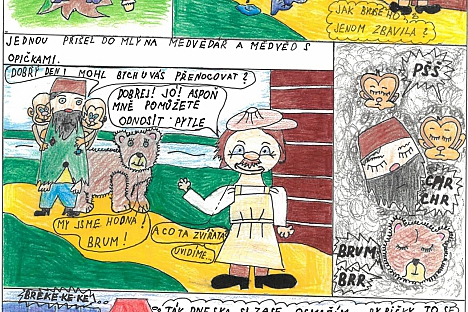 JAK BYCH HO
JENOM ZBAVILA?
JEDNOU PŘIŠEL DO MLÝNA MEDVĚDÁŘ A MEDVĚD S
OPIČKAMI.
DOBRÝ DEN! MOHL BYCH U VÁS PŘENOCOVAT?
DOBREJ! JÓ! ASPOŇ
MNĚ POMŮŽETE
ODNOSIT PYTLE
MY JSME HODNÁ!
BRUM!
A CO TA ZVÍŘATA
UVIDÍME...
PŠŠ
CHR
CHR
BRUM
BRR
BREKE-KE-KE...
TAK DNESKA SI ZASE OSMAŽÍM RYBIČKY TO SE